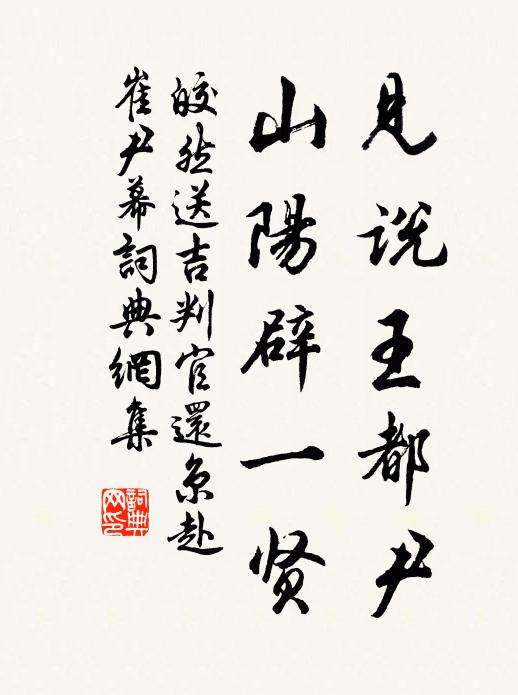 见说王都尹
山陽辟一贤
皎然送吉判官還京赴
崔尹幕詞典網集
詞典
网印